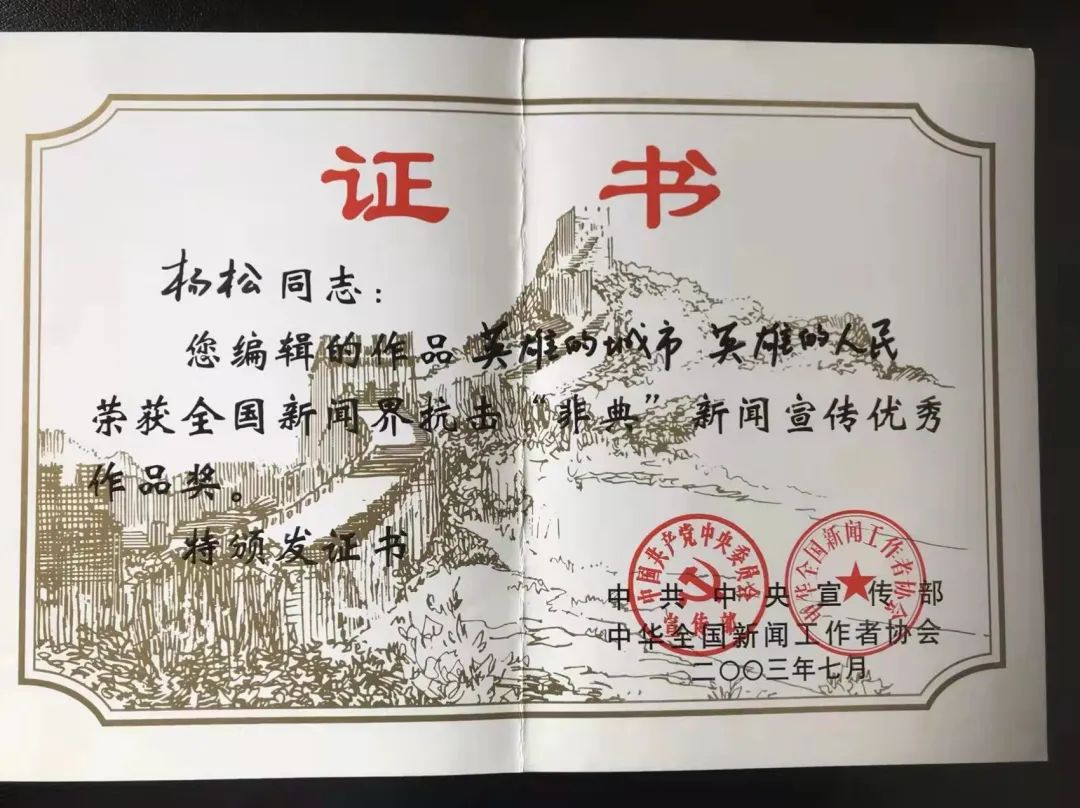 证书
杨松同志：
您编辑的作品 英雄的城市 英雄的人民
荣获全国新闻界抗击“非典”新闻宣传优秀
作品奖。
特颁发证书
中国共产党中央委员会
宣传部
中华全国新闻工作者协会
中共中央宣传部
中华全国新闻工作者协会
二〇〇三年七月